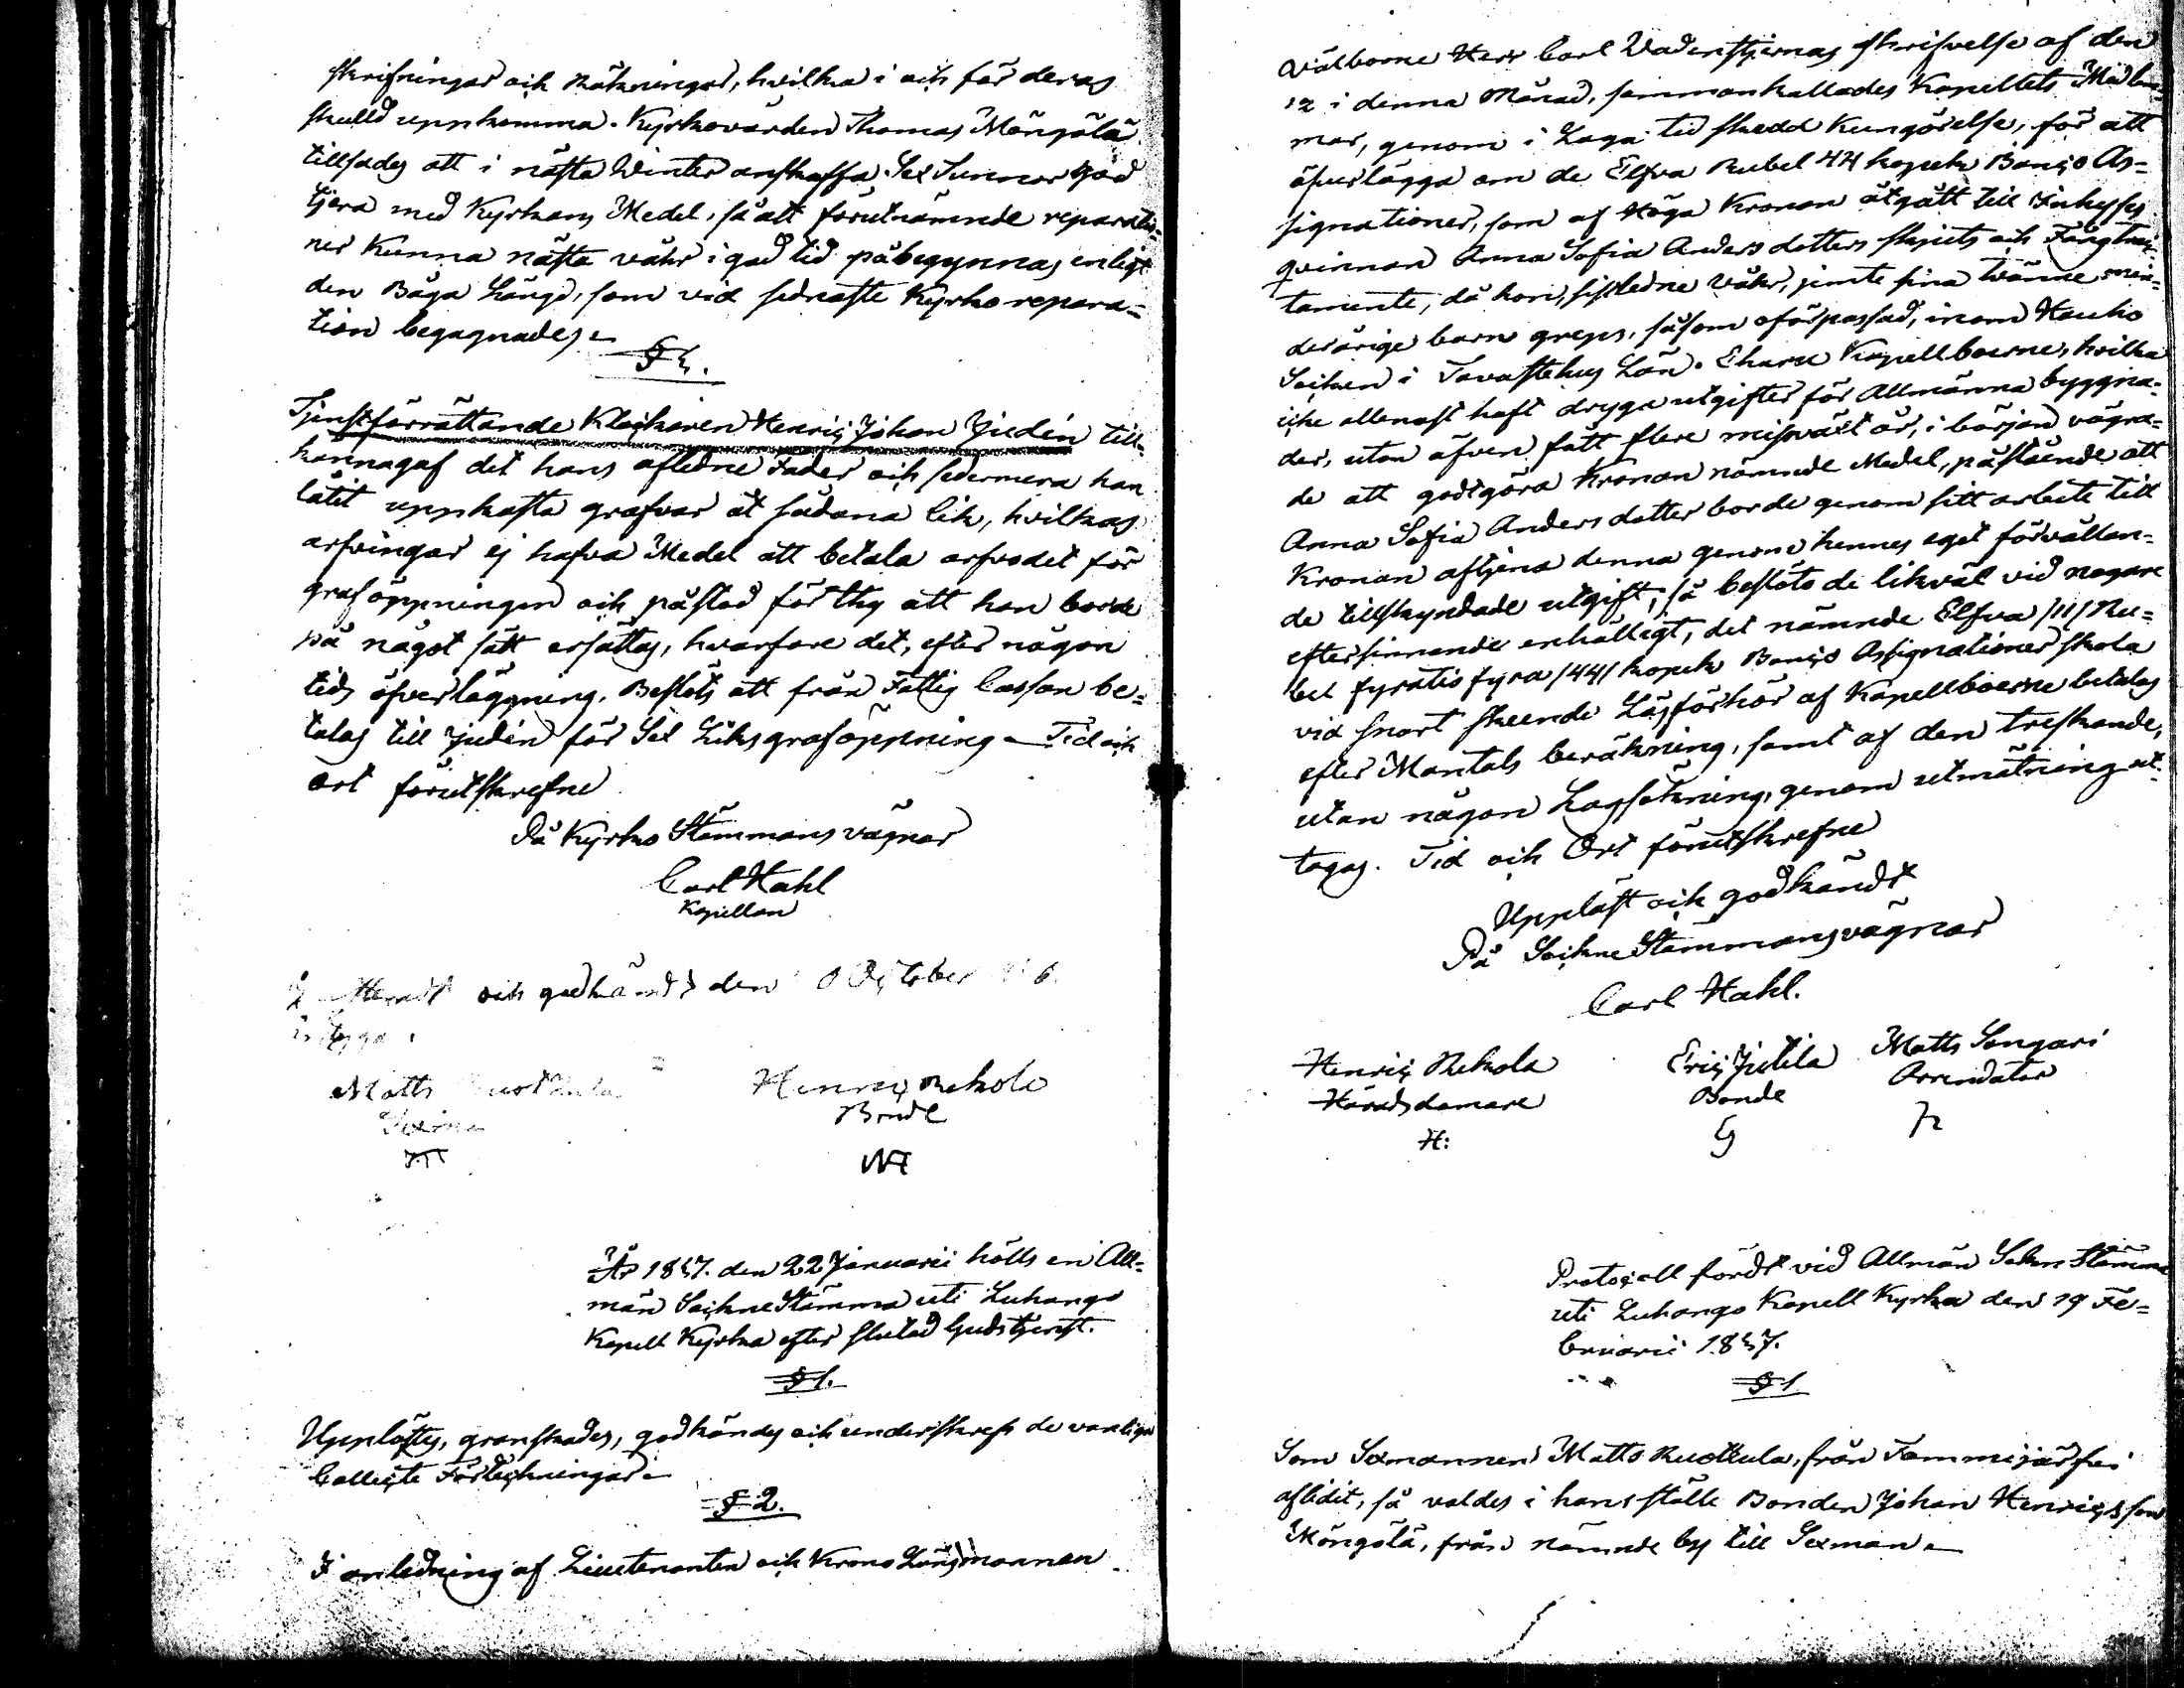 skrifningar och Räkningar, hvilka i och för deras
skull uppkomma. Kyrkovärden Thomas Mängälä
tillsades att i nästa Winter anskaffa Sex Tunnor god
tjera med Kyrkans Medel, så att förutnämnde reparatio=
ner kunna nästa våhr i god tid påbegynnas enligt
den Båga Längd, som vid sednaste Kyrko repara=
tion begagnades.
§ 5.
Tjenstförrättande Klockaren Henric Johan Judin till=
kännagaf det hans aflidne Fader och sedermera han
låtit uppkasta grafvar åt sådana lik, hvilkas
arfvingar ej hafva Medel att betala arfvodet för
graföppningen och påstod för thy att han borde
på något sätt ersättas, hvarföre det, efter någon
tids öfverläggning. Beslöts att från Fattig Cassan be=
talas till Judin för Sex Liks graföppning. Tid och
ort förutskrefne
På Kyrko Stämmans vägnar
Carl Hahl
Kapellan
och godkändt den October
Matts
Henric Rekola
Bonde
År 1857. den 22 Januarii hölls en All=
män Sockne Stämma uti Luhango
Kapell Kyrka efter slutad Gudstjenst.
§ 1.
Upplästes, granskades, godkändes och underskrefs de vanliga
Collecte Förteckningar.
§ 2.
I anledning af Lieutenanten och Krono Länsmannen
Välborne Herr Carl Wadenstjernas skrifvelse af den
12 i denna Månad, sammankallades Kapellets Medlem=
mar, genom i Laga tid skedd Kungörelse, för att
öfverlägga om de Elfva Rubel 44 kopek Banco As=
signationer, som af Höga Kronan åtgått till Inhyses
qvinnan Anna Sofia Andersdotters skjuts och Fångtrac=
tamente, då hon, sistledne våhr, jemte sina tvänne min=
derårige barn greps, såsom oförpassad, inom Hauho
Socken i Tavastehus Län. Ehuru Kapellboerne, hvilka
icke allenast haft dryga utgifter för Allmänna byggna=
der, utan äfven fått flere missväxt år, i början vägra=
de att godtgöra Kronan nämnde Medel, påstående att
Anna Sofia Andersdotter borde genom sitt arbete till
Kronan aftjena denna genom hennes eget förvållan=
de tillskyndade utgift; så beslöto de likväl vid nogare
eftersinnande enhälligt, det nämnde Elfva /11/ Ru=
bel fyratio fyra /44/ kopek Banco Assignationer skola
vid snart skeende Läsförhör af Kapellboerne betalas
efter Mantals beräkning, samt af den treskande,
utan någon Lagsökning, genom utmätning ut=
tagas. Tid och Ort förutskrefne
Uppläst och godkändt
På Sockne Stämmans vägnar
Carl Hahl.
Henric Rekola Eric Jutila Matts Sangari
Häradsdomare Bonde Arrendator
H:
Protocoll fördt vid Allmän Sokne Stämma
uti Luhango Kapell Kyrka den 19 Fe=
bruarii 1857.
§ 1
Som Sexmannen Matts Ruotkula, från Tammijärfvi
aflidit, så valdes i hans ställe Bonden Johan Henricsson
Mängälä, från nämnde by till Sexman.